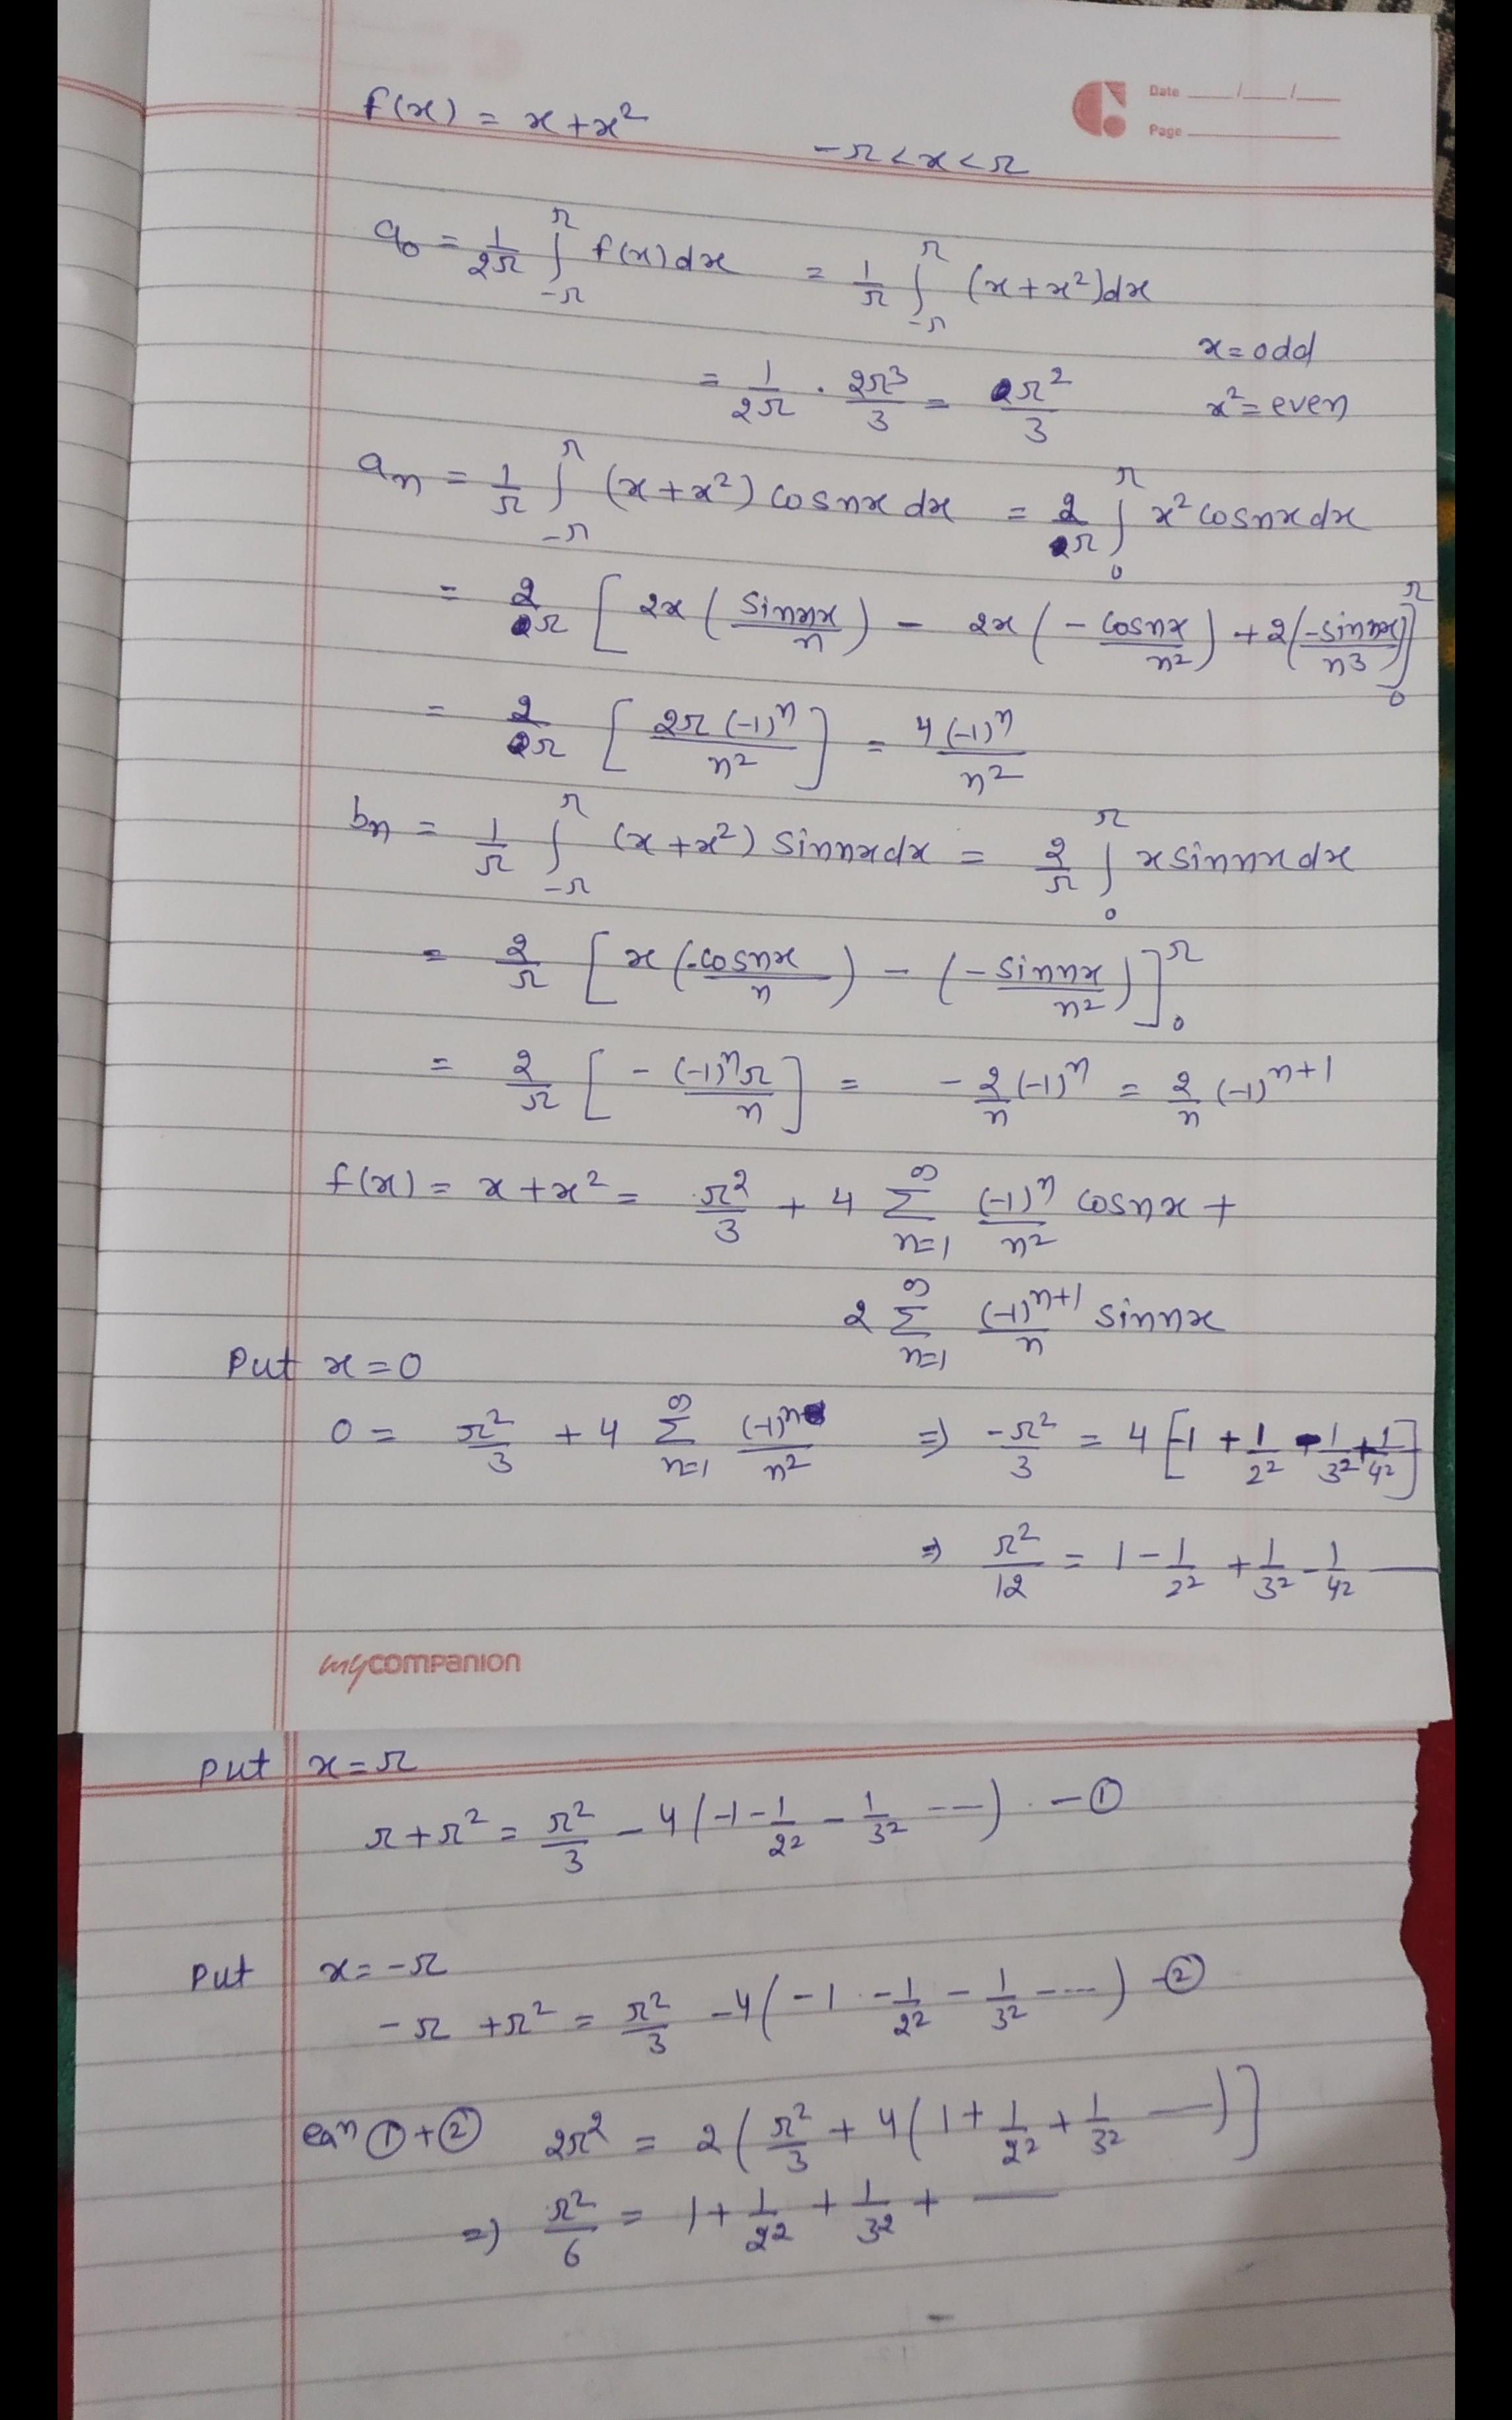 Date ___/___/___
Page ___
f(x) = x+x²
-π<x<π
a₀ = 1/2π ∫_{-π}^{π} f(x)dx = 1/π ∫_{-π}^{π} (x+x²)dx
x=odd
= 1/2π · 2π³/3 = π²/3
x²=even
aₙ = 1/π ∫_{-π}^{π} (x+x²) cosnx dx = 2/π ∫_{0}^{π} x² cosnx dx
= 2/π [2x (sinnx/n) - 2x (-cosnx/n²) + 2(-sinnx/n3)]_{0}^{π}
= 2/π [2π(-1)ⁿ/n²] = 4(-1)ⁿ/n²
bₙ = 1/π ∫_{-π}^{π} (x+x²) sinnxdx = 2/π ∫_{0}^{π} x sinnx dx
= 2/π [x(-cosnx/n) - (-sinnx/n²)]_{0}^{π}
= 2/π [-(-1)ⁿπ/n] = -2/n (-1)ⁿ = 2/n (-1)ⁿ⁺¹
f(x) = x+x² = π²/3 + 4 ∑_{n=1}^{∞} (-1)ⁿ/n² cosnx +
2 ∑_{n=1}^{∞} (-1)ⁿ⁺¹/n sinnx
Put x=0
0 = π²/3 + 4 ∑_{n=1}^{∞} (-1)ⁿ/n² ⇒ -π²/3 = 4 [-1 + 1/2² - 1/3² + 1/4²]
⇒ π²/12 = 1 - 1/2² + 1/3² - 1/4² —
mycompanion
put x=π
π+π² = π²/3 - 4(-1 - 1/2² - 1/3² ---) - ①
Put x=-π
-π +π² = π²/3 - 4(-1 - 1/2² - 1/3² - ---) - ②
eqn ①+② 2π² = 2(π²/3 + 4(1 + 1/2² + 1/3² —)]
⇒ π²/6 = 1 + 1/2² + 1/3² + —